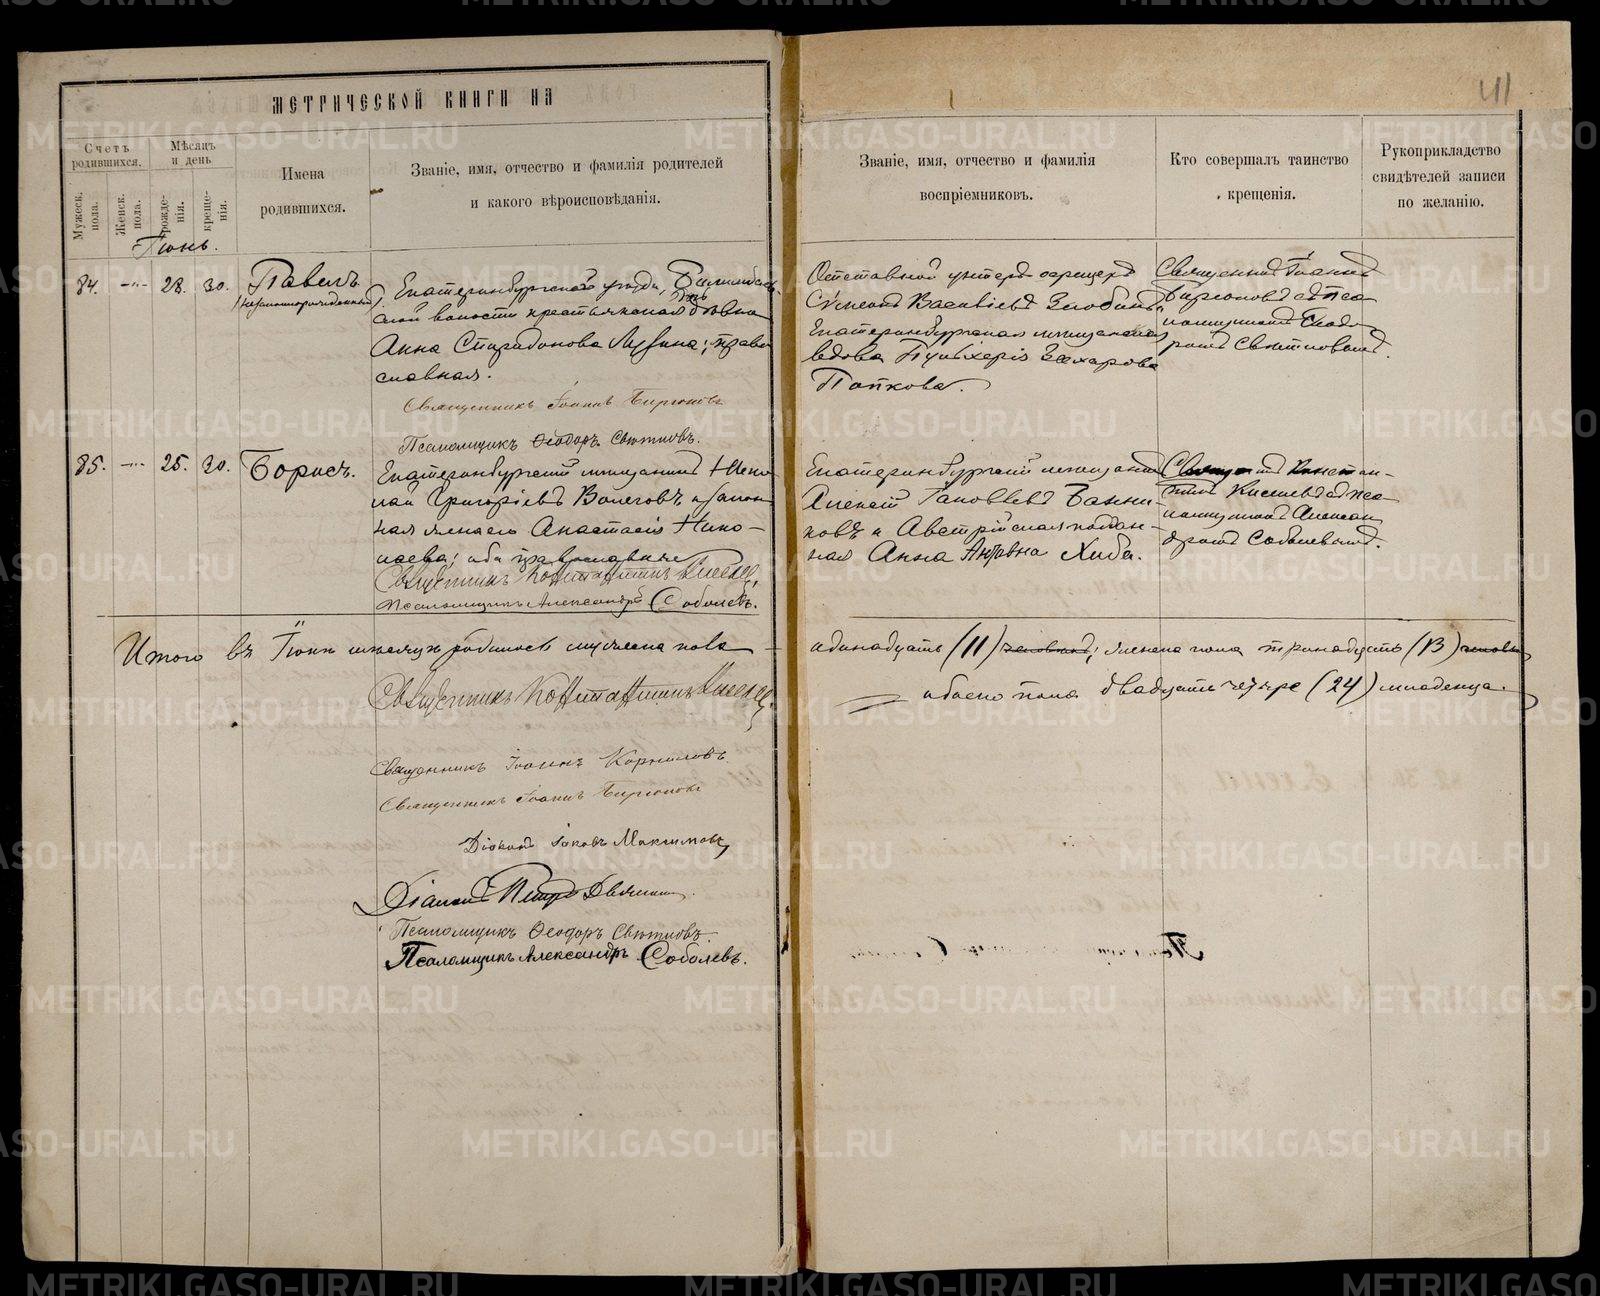 МЕТРИЧЕСКОЙ КНИГИ НА
41
Счетъ родившихся.
Мѣсяцъ и день
Имена родившихся.
Званіе, имя, отчество и фамилія родителей
и какого вѣроисповѣданія.
Мужеск. пола.
Женск. пола.
рожде-нія.
креще-нія.
Званіе, имя, отчество и фамилія
воспріемниковъ.
Кто совершалъ таинство
крещенія.
Рукоприкладство
свидѣтелей записи
по желанію.
Іюнь.
84. 28. 30. Павелъ
(незаконнорожденный)
Екатеринбургскаго уѣзда, Билимбаев-
ской волости крестьянская дѣвка
Анна Спиридонова Лузина; право
славная.
Священникъ Іоаннъ Бирюковъ
Псаломщикъ Ѳеодоръ Свѣтловъ.
Отставной унтеръ-офицеръ
Симеонъ Васильевъ Злобинъ
Екатеринбургская мѣщанская
вдова Пульхерія Захарова
Попкова.
Священникъ Іоаннъ
Бирюковъ съ пса
ломщикомъ Ѳеодо
ромъ Свѣтловымъ.
85. 25. 30. Борисъ.
Екатеринбургскій мѣщанинъ Нико
лай Григоріевъ Волеговъ и закон
ная жена его Анастасія Нико-
лаева; оба православные
Священникъ Константинъ Киселев,
Псаломщикъ Александръ Соболевъ.
Екатеринбургскій мѣщанинъ
Алексѣй Іаковлевъ Банни-
ковъ и Австрійская поддан-
ная Анна Антовна Хиба.
Священникъ Констан-
тинъ Киселевъ съ пса
ломщикомъ Алексан
дромъ Соболевымъ.
Итого въ Іюнѣ мѣсяцѣ родилось мужеска пола
одинадцать (11) человѣкъ; женска пола тринадцать (13) человѣкъ
обоего пола двадцать четыре (24) младенца.
Священникъ Константинъ Киселев.
Священникъ Іоаннъ Корниловъ
Священникъ Іоаннъ Бирюковъ
Діаконъ Іаковъ Максимовъ
Діаконъ Петръ
Псаломщикъ Ѳеодоръ Свѣтловъ.
Псаломщикъ Александръ Соболевъ.
METRIKI.GASO-URAL.RU